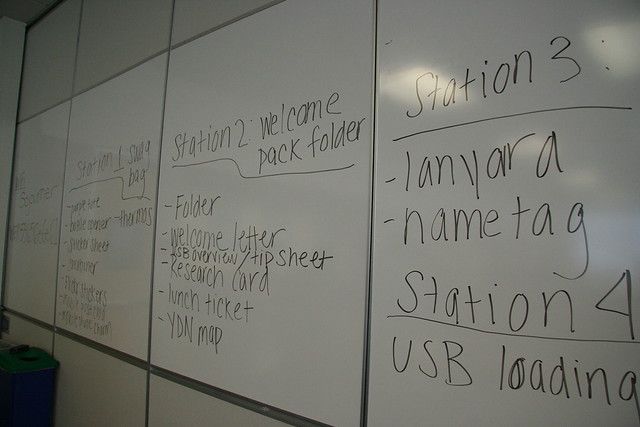 Station 1 swag
bag
- bottle opener - thermos
- sticker sheet
Station 2: welcome
pack folder
- Folder
- welcome letter
- USB overview/tip sheet
- Research card
- lunch ticket
- YDN map
Station 3:
- lanyard
- name tag
Station 4
USB loading